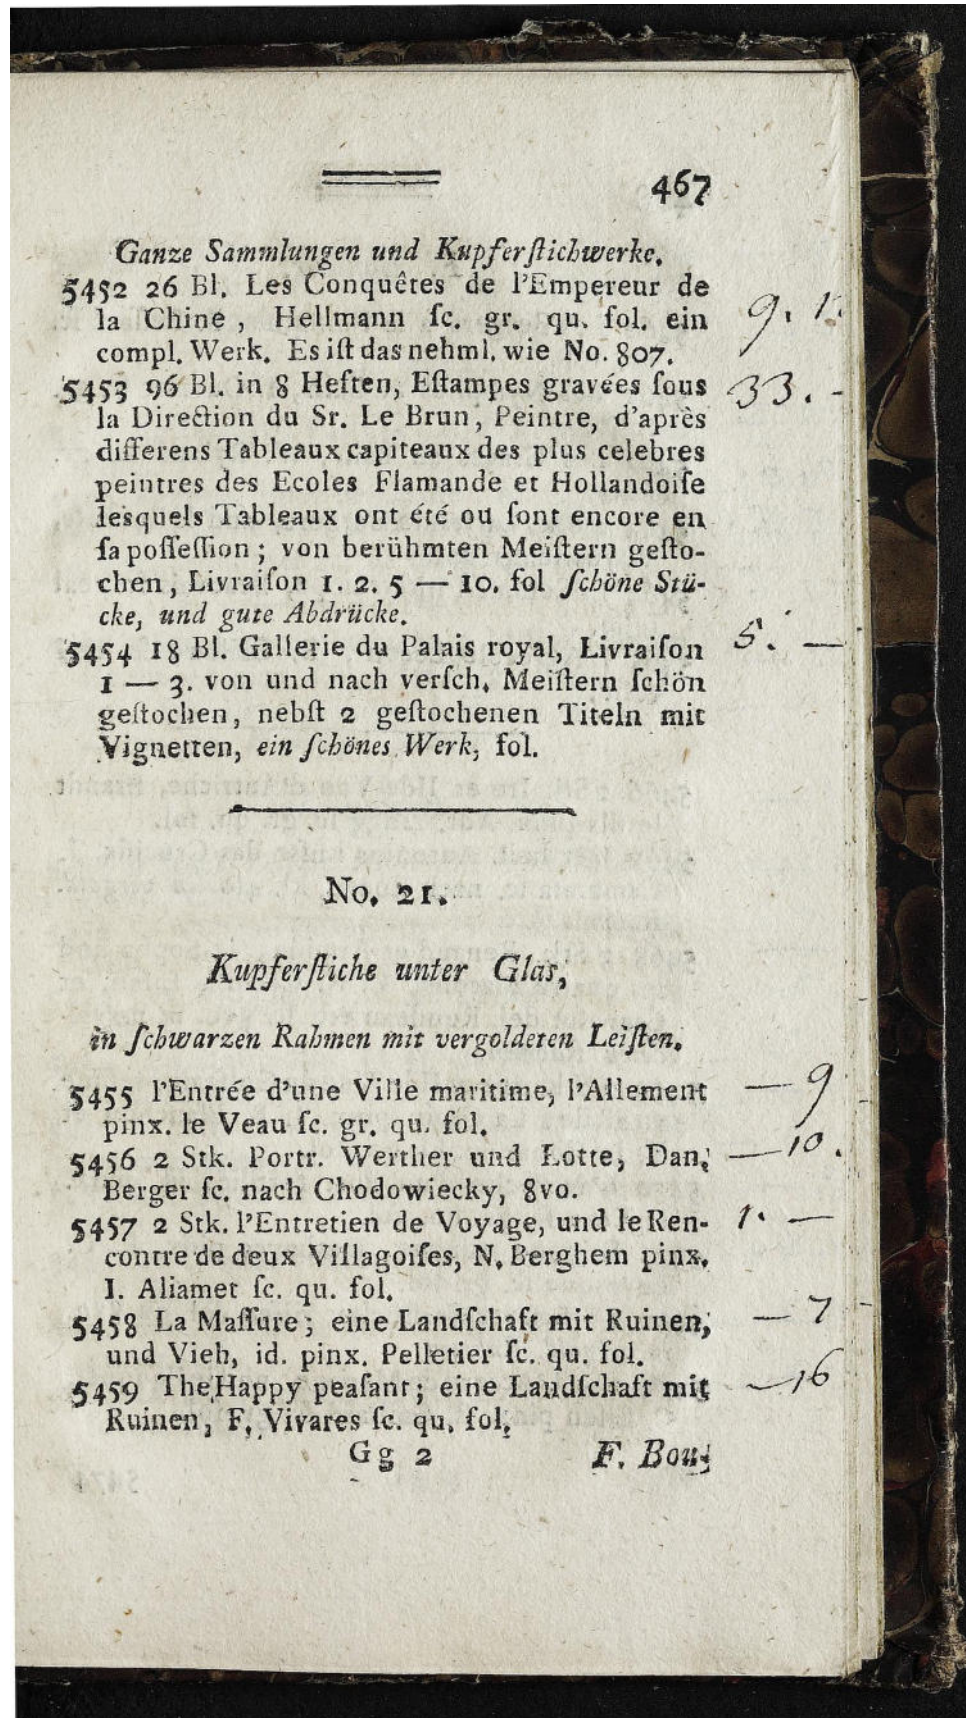 467
Ganze Sammlungen und Kupferſtichwerke.
5452 26 Bl. Les Conquêtes de l'Empereur de
la Chine, Hellmann ſc. gr. qu. fol. ein
compl. Werk. Es iſt das nehml. wie No. 807.
9. 1.
5453 96 Bl. in 8 Heften, Eſtampes gravées ſous
33. -
la Direction du Sr. Le Brun, Peintre, d'après
differens Tableaux capiteaux des plus celebres
peintres des Ecoles Flamande et Hollandoiſe
lesquels Tableaux ont été ou ſont encore en
ſa poſſeſſion; von berühmten Meiſtern geſto-
chen, Livraiſon 1. 2. 5 — 10. fol ſchöne Stü-
cke, und gute Abdrücke.
5454 18 Bl. Gallerie du Palais royal, Livraiſon
5. —
1 — 3. von und nach verſch. Meiſtern ſchön
geſtochen, nebſt 2 geſtochenen Titeln mit
Vignetten, ein ſchönes Werk, fol.
No. 21.
Kupferſtiche unter Glas,
in ſchwarzen Rahmen mit vergoldeten Leiſten.
5455 l'Entrée d'une Ville maritime, l'Allement
— 9
pinx. le Veau ſc. gr. qu. fol.
5456 2 Stk. Portr. Werther und Lotte, Dan.
— 10.
Berger ſc. nach Chodowiecky, 8vo.
5457 2 Stk. l'Entretien de Voyage, und le Ren-
1. —
contre de deux Villagoiſes, N. Berghem pinx.
I. Aliamet ſc. qu. fol.
5458 La Maſſure; eine Landſchaft mit Ruinen,
— 7
und Vieh, id. pinx. Pelletier ſc. qu. fol.
5459 The Happy peaſant; eine Landſchaft mit
— 16
Ruinen, F. Vivares ſc. qu. fol.
Gg 2 F. Bou-